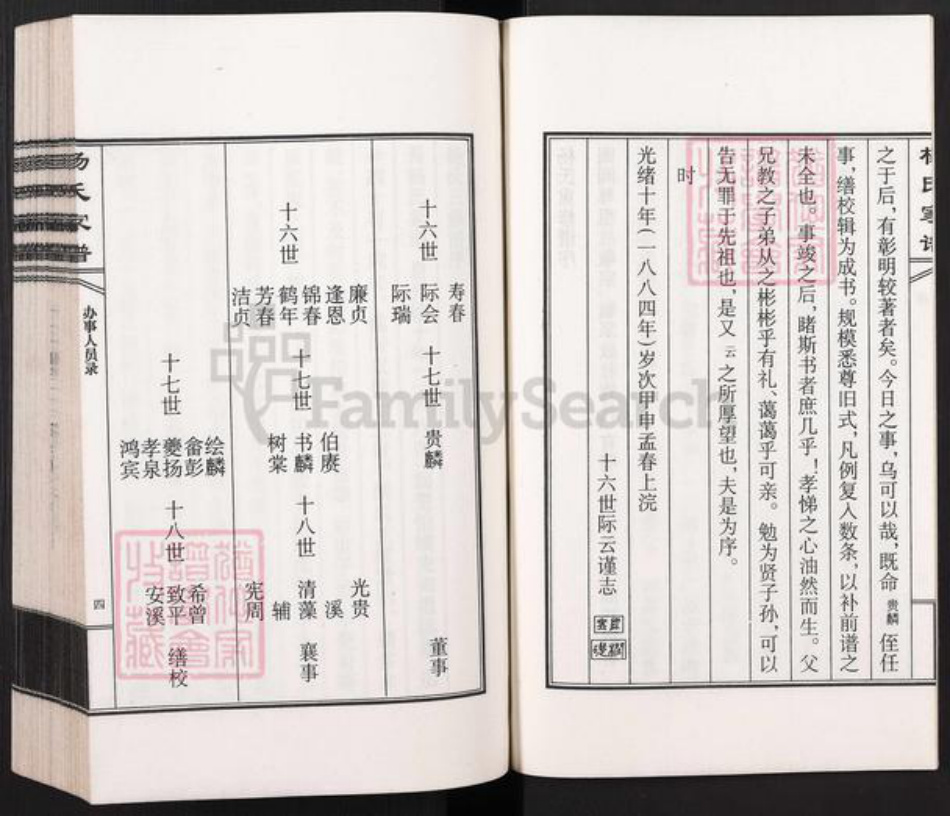 杨氏家谱
之于后，有彰明较著者矣。今日之事，乌可以哉，既命贵麟侄任
事，缮校辑为成书。规模悉尊旧式，凡例复入数条，以补前谱之
未全也。事竣之后，睹斯书者庶几乎！孝悌之心油然而生。父
兄教之子弟从之彬彬乎有礼、蔼蔼乎可亲。勉为贤子孙，可以
告无罪于先祖也，是又云之所厚望也，夫是为序。
时
光绪十年（一八八四年）岁次甲申孟春上浣
十六世际云谨志
寿春
十六世 际会 十七世 贵麟 董事
际瑞
廉贞 光贵
逢恩 伯赓 溪
锦春 书麟 清藻
十六世 鹤年 十七世 十八世 襄事
芳春 树棠 辅
洁贞 宪周
绘麟 希曾
畲彭
十七世 夔扬 十八世 致平 缮校
孝泉 安溪
鸿宾
杨氏家谱
办事人员录
四
FamilySearch